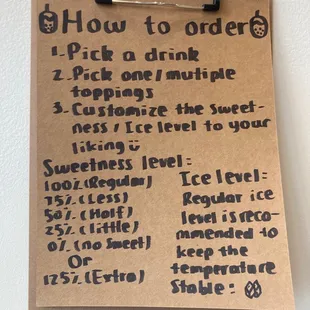 How to order
1. Pick a drink
2. Pick one/mutiple
toppings
3. Customize the sweet-
ness / Ice level to your
liking
Sweetness level:
100% (Regular)
75% (Less)
50% (Half)
25% (little)
0% (no sweet)
Or
125% (Extra)
Ice level:
Regular ice
level is reco-
mmended to
keep the
temperature
Stable: